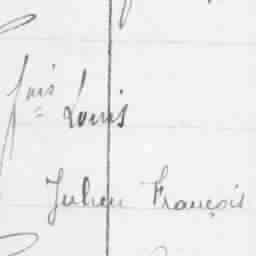 Louis
Julien François